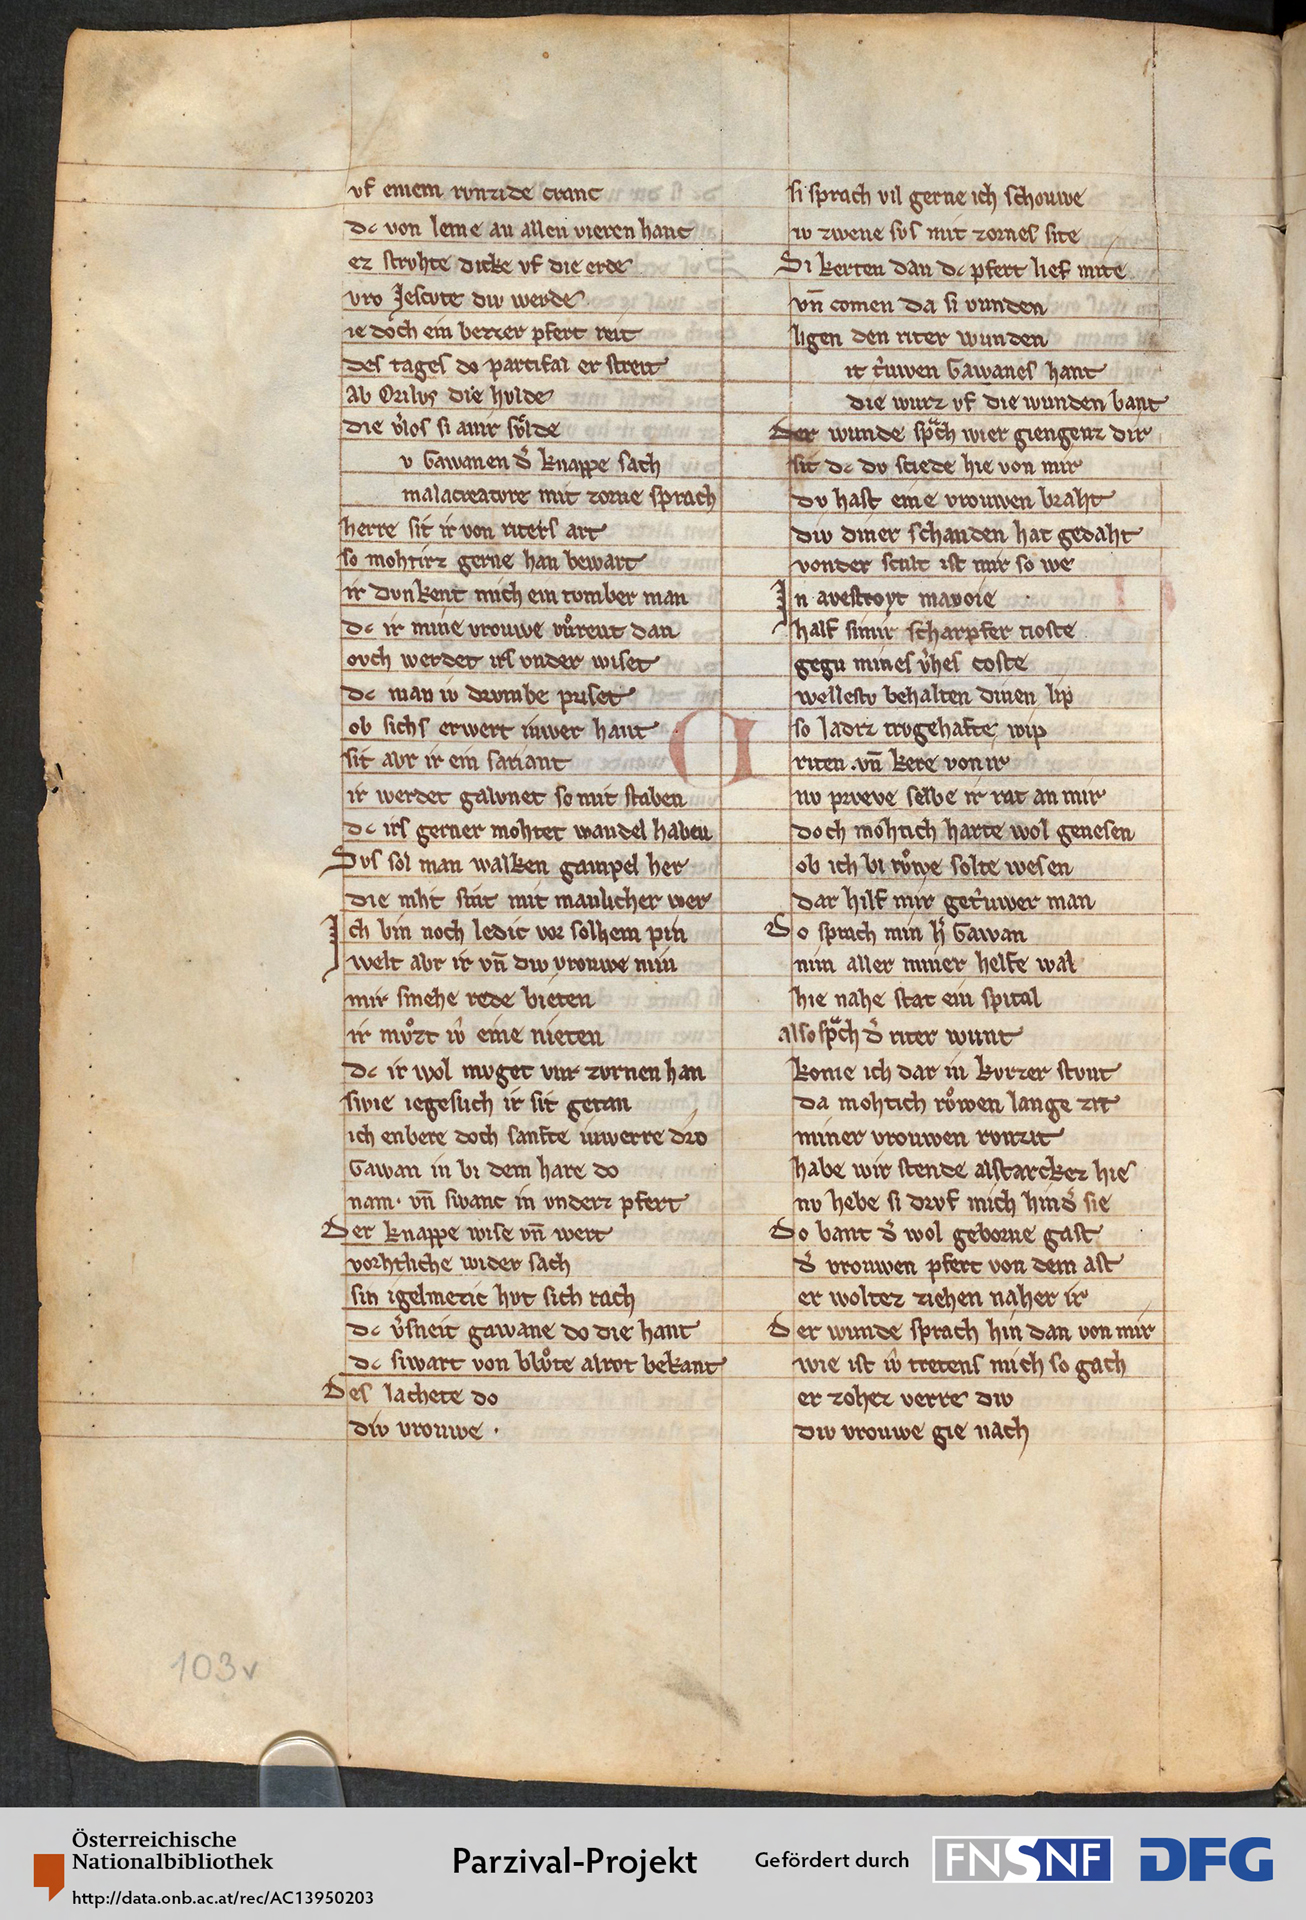 vf einem runzide cranc
dc von leme an allen vieren hanc
ez struhte dicke vf die erde
vro Jescute diw werde
ie doch ein bezzer pfert reit
des tages do partifal er streit
Ab Orilus die hulde
die v͛los si anir sv̊lde
v Gawanen d͛ knappe sach
malacreature mit zorne sprach
herre sit ir von riters art
so mohtirz gerne han bewart
ir dunkent mich ein tumber man
dc ir mine vrouwe vůrent dan
ovch werdet irs vnder wiset
dc man iv drumbe priset
ob sichs erwert iuwer hant
sit abr ir ein sariant
ir werdet galvnet so mit staben
dc irs gerner mohtet wandel haben
Svs sol man walken gampel her
die niht sint mit manlicher wer
Ich bin noch ledic vor solhem pin
welt abr ir vn̄ diw vrouwe min
mir smehe rede bieten
ir mv̊zt iv̂ eine nieten
dc ir wol muget vur zurnen han
swie iegeslich ir sit getan
ich enbere doch sanfte iuwerre dro
Gawan in bi dem hare do
nam · vn̄ swanc in vnderz pfert
Der knappe wise vn̄ wert
vorhtliche wider sach
sin igelmezic hut sich rach
dc v͛sneit gawane do die hant
dc siwart von blv̊te alrot bekant
Des lachete do
div vrouwe ·
si sprach vil gerne ich schouwe
iv zwene sus mit zornes site
Si kerten dan dc pfert lief mite
vn̄ comen da si vunden
ligen den riter wunden
it tr̂uwen Gawanes hant
die wurz vf die wunden bant
Der wunde spͣch wier giengenz dir
sit dc du sciede hie von mir
du hast eine vrouwen braht
diw diner schanden hat gedaht
vonder scult ist mir so we
In avestroyt mavoie
half simir scharpfer tioste
gegn mines v͛hes coste
wellestv behalten dinen lip
so ladrz trugehafte wip
riten . vn̄ kere von ir
nv prveve selbe ir rat an mir
doch mohtich harte wol genesen
ob ich bi rv̊we solte wesen
dar hilf mir getr̂uwer man
Do sprach min h͛ Gawan
nim aller miner helfe wal
hie nahe stat ein spital
also spͣch d͛ riter wunt
kome ich dar in kurzer stunt
da mohtich rv̊wen lange zit
miner vrouwen runzit
habe wir stende alstarckez hie
nv hebe si druf mich hind͛ sie
Do bant d͛ wol geborne gast
d͛ vrouwen pfert von dem ast
er woltez ziehen naher ir
Der wunde sprach hin dan von mir
wie ist iv̂ tretens mich so gach
er zohez verre diw
diw vrouwe gie nach
103v
Österreichische
Nationalbibliothek
http://data.onb.ac.at/rec/AC13950203
Parzival-Projekt
Gefördert durch
FNSNF
DFG